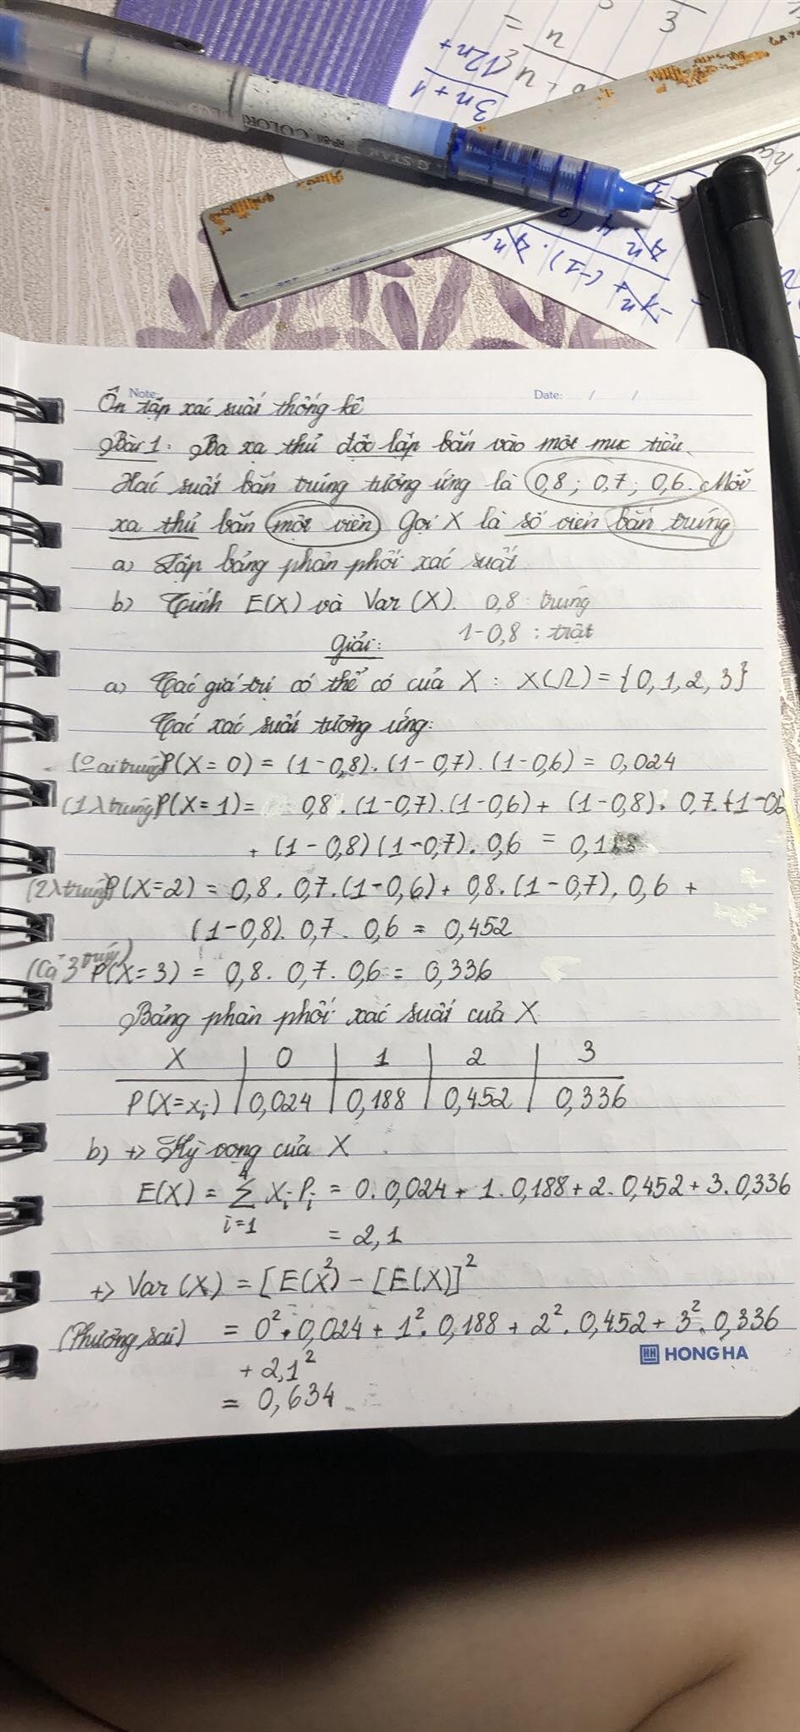 3n+1
12n+
3
G STAR
COLOR
Note:
Date: / /
Ôn tập xác suất thống kê
Bài 1: Ba xạ thủ độc lập bắn vào một mục tiêu.
Xác suất bắn trúng tương ứng là 0,8; 0,7; 0,6. Mỗi
xạ thủ bắn một viên. Gọi X là số viên bắn trúng
a) Lập bảng phân phối xác suất
b) Tính E(X) và Var(X). 0,8: trúng
Giải: 1-0,8: trật
a) Các giá trị có thể có của X: X(Ω) = {0, 1, 2, 3}
Các xác suất tương ứng:
(0 ai trúng) P(X = 0) = (1-0,8).(1-0,7).(1-0,6) = 0,024
(1 λ trúng) P(X = 1) = 0,8.(1-0,7).(1-0,6) + (1-0,8). 0,7.(1-0,6
+ (1-0,8)(1-0,7). 0,6 = 0,188
(2 λ trúng) P(X=2) = 0,8. 0,7.(1-0,6) + 0,8.(1-0,7). 0,6 +
(1-0,8). 0,7. 0,6 = 0,452
(Cả 3 trúng) P(X=3) = 0,8. 0,7. 0,6 = 0,336
Bảng phân phối xác suất của X
X | 0 | 1 | 2 | 3
P(X=xᵢ) | 0,024 | 0,188 | 0,452 | 0,336
b) +> Kỳ vọng của X
E(X) = Σ⁴ᵢ₌₁ xᵢ Pᵢ = 0. 0,024 + 1. 0,188 + 2. 0,452 + 3. 0,336
= 2,1
+> Var(X) = [E(X²) - [E(X)]²
(Phương sai) = 0². 0,024 + 1². 0,188 + 2². 0,452 + 3². 0,336
+ 2,1²
HH HONG HA
= 0,634